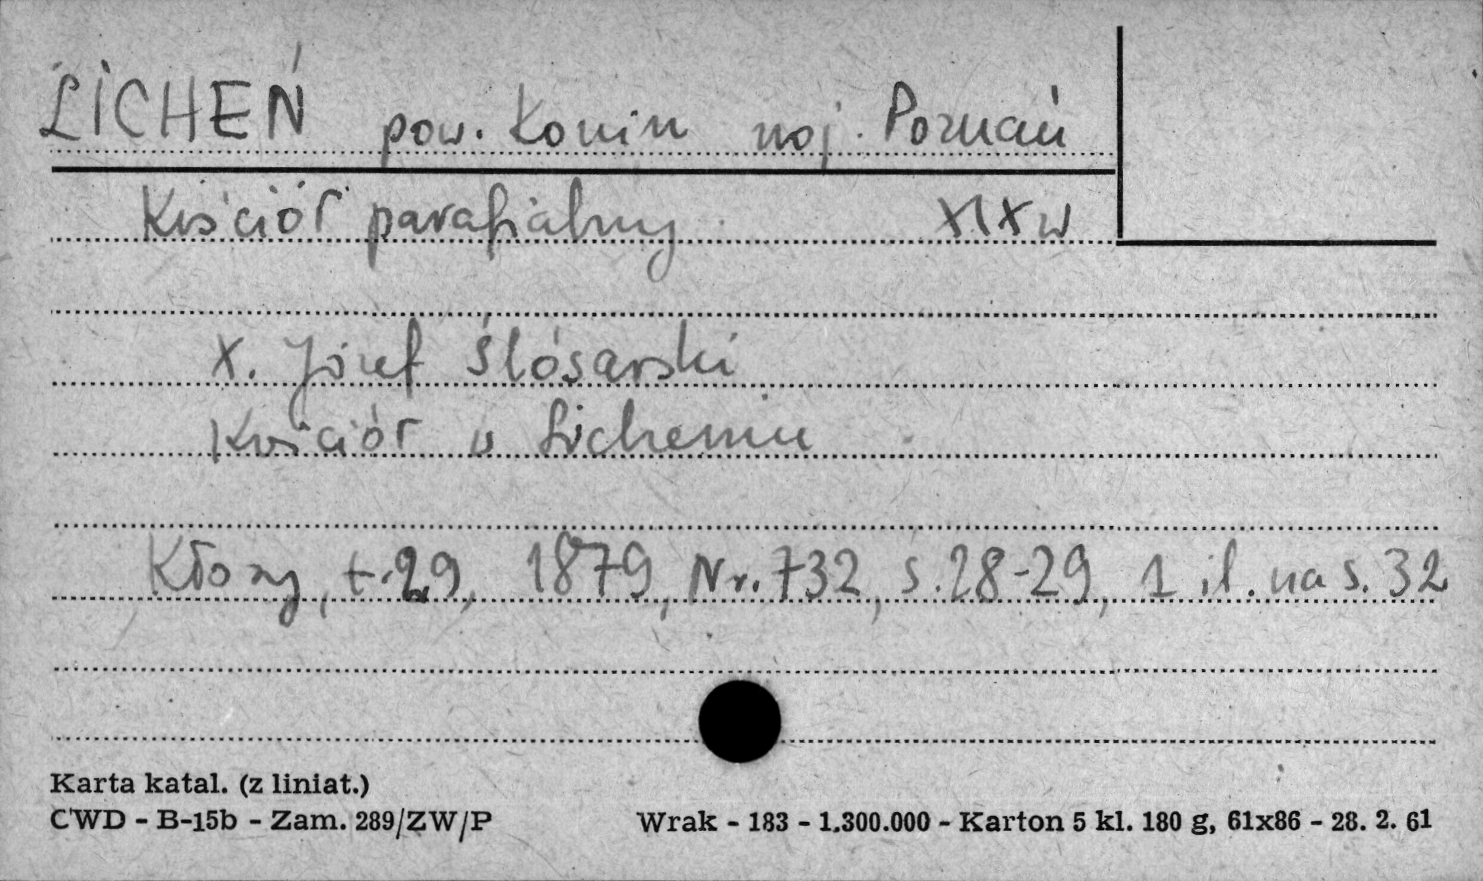 LICHEŃ pow. Konin woj. Poznań
Kościół parafialny XIX w
X. Józef Ślósarski
Kościół w Licheniu
Kłosy, t. 29, 1879, Nr. 732, s. 28-29, 1 il. na s. 32
Karta katal. (z liniat.)
CWD - B-15b - Zam. 289/ZW/P Wrak - 183 - 1.300.000 - Karton 5 kl. 180 g, 61x86 - 28. 2. 61